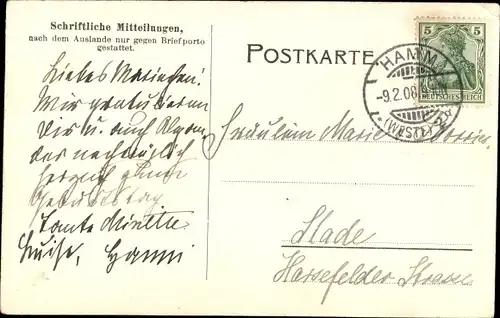 Schriftliche Mitteilungen,
nach dem Auslande nur gegen Briefporto
gestattet.
POSTKARTE
5 5
DEUTSCHES REICH
HAMM
-9.2.08
*(WESTF)
Liebes Mariechen!
Wir gratulieren
Dir u. auch
nachträglich
herzlich zum
Geburtstag
Tante
Luise, Hanni
Fräulein Marie
Stade
Harsefelder Strasse